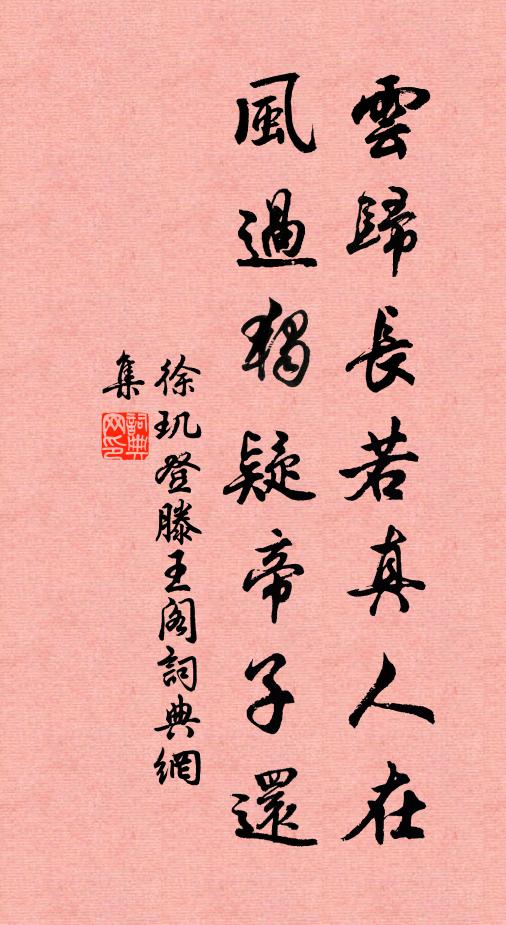 雲歸長若真人在
風過猶疑帝子還
徐玑登滕王阁詞典網
集
詞典网印